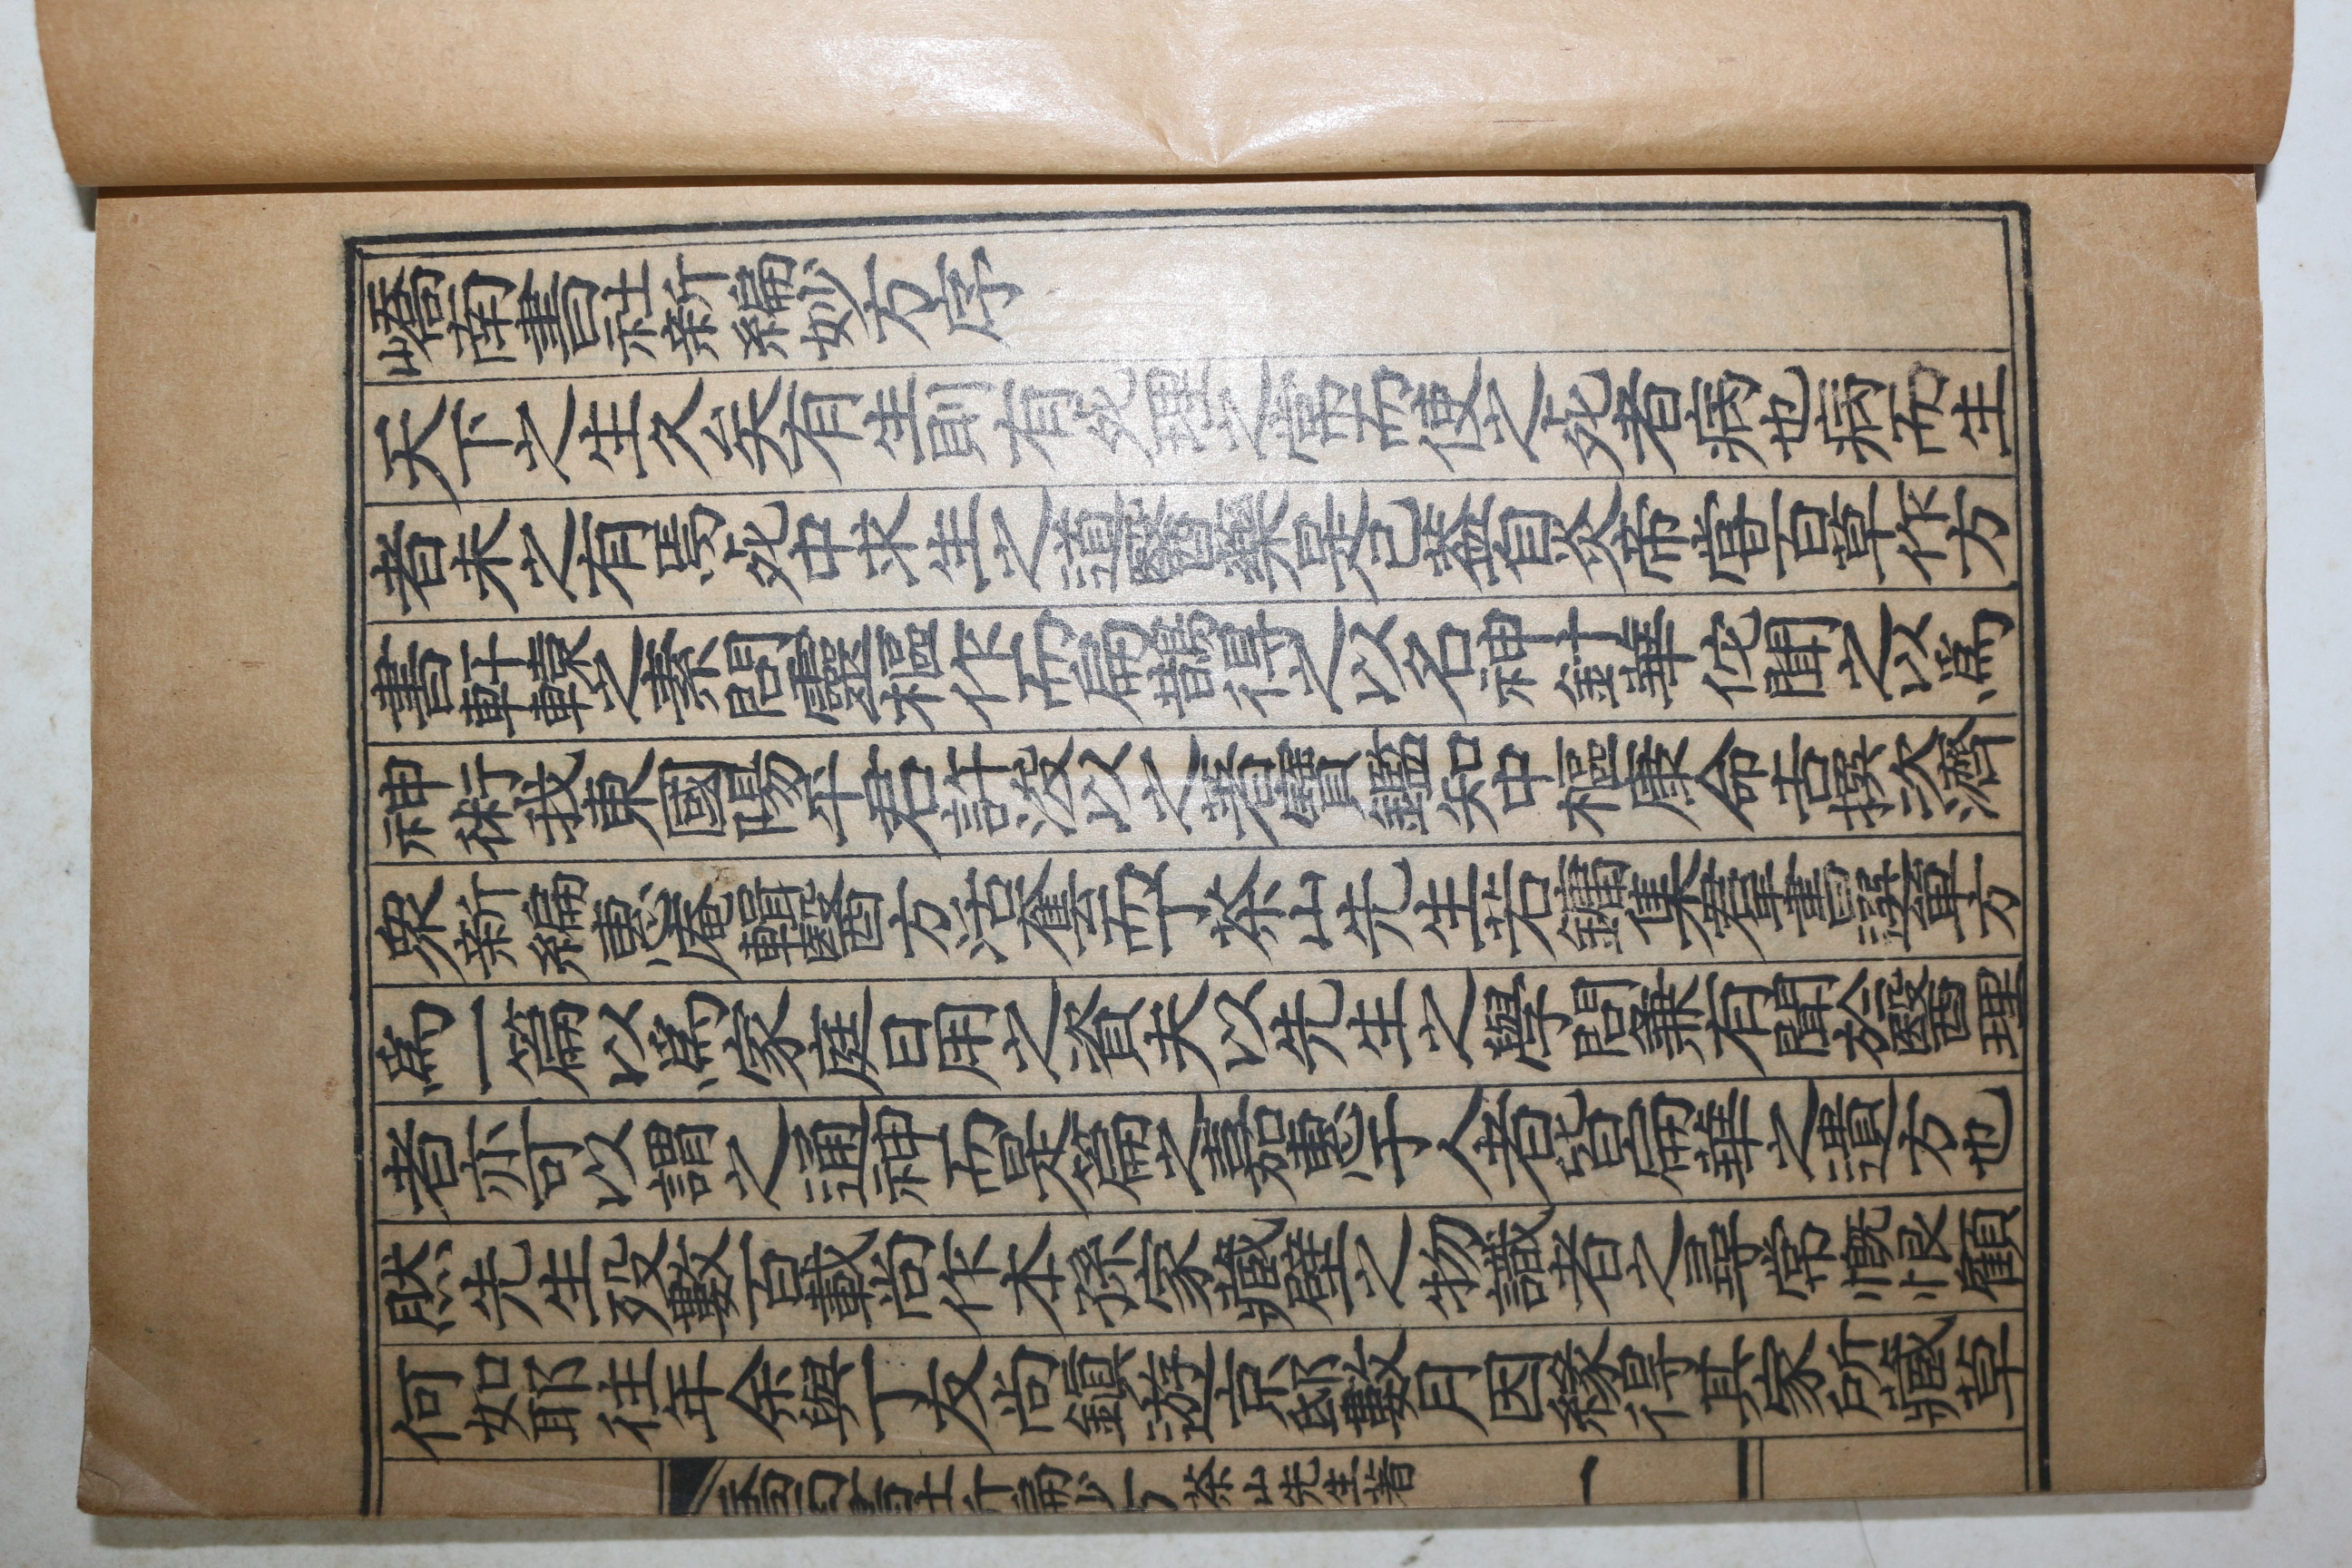 嶠南書社新編妙方序
天下之生久矣有生則有死理之常而使之死者病也病而生
者未之有焉死中求生之道醫藥是已葢自炎帝嘗百草作方
書軒轅之素問靈樞作而扁鵲得之以名神針華佗聞之以爲
神術我東國陽平君許浚以之著寶鑑知中樞康命吉撰次濟
衆新編惠庵輯醫方活套而丁茶山先生若鏞集群書選單方
爲一篇以爲家庭日用之資夫以先生之學問兼有聞於醫理
者亦可以謂之通神而是篇之嘉惠于人者皆扁華之遺方也
然先生歿數百載尚作本孫家藏壁之物識者之尋常慨恨顧
何如耶往年余與丁友尚鎭遊京邸數月因緣得其家所藏草
嶠南書社新編妙方 茶山先生著 一